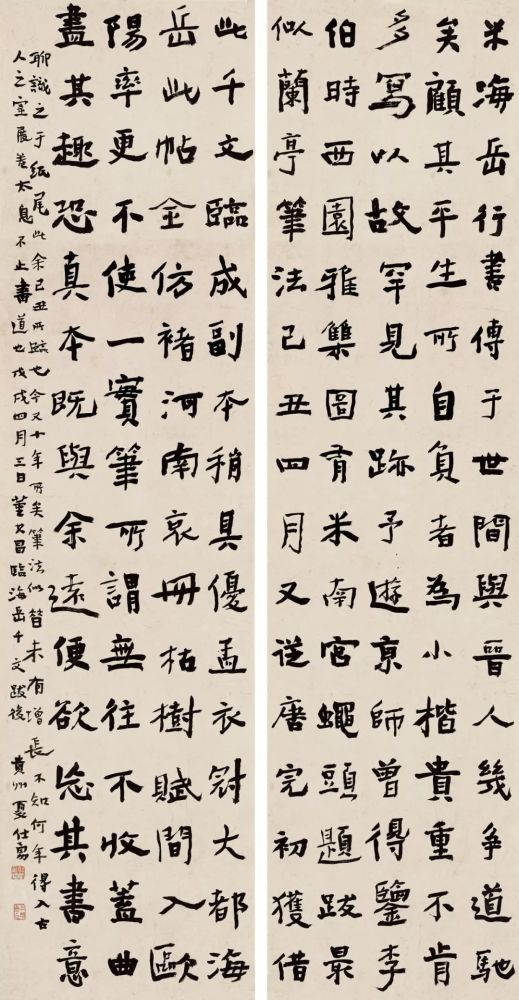 米海岳行書傳于世間與晉人幾爭道馳
矣顧其平生所自負者為小楷貴重不肯
多寫以故罕見其跡予遊京師曾得鑒李
伯時西園雅集圖有米南宮蠅頭題跋最
似蘭亭筆法己丑四月又從唐完初獲借
此千文臨成副本稍具優孟衣冠大都海
岳此帖全仿褚河南哀冊枯樹賦間入歐
陽率更不使一實筆所謂無往不收蓋曲
盡其趣恐真本既與余遠便欲忘其書意
聊識之于紙尾此余己丑所臨也今又十年所矣筆法似昔未有增長不知何年得入古
人之室展卷太息不止書道也戊戌四月三日董其昌臨海岳千文跋後 黃州夏仕勇